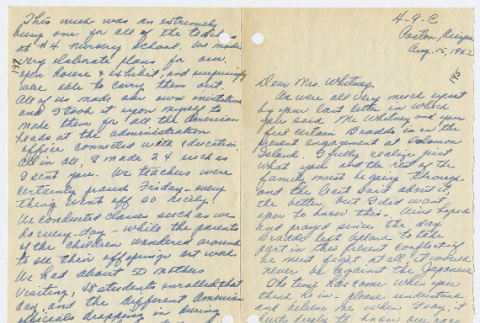 4-9-C
Poston, Arizona
Aug. 15, 1942
145
Dear Mrs. Whitney,
We were all very much upset
by your last letter in which
you said Mr. Whitney and you
feel certain Bradds is in the
present engagement at Solomon
Island. I fully realize just
what you and the rest of the
family must be going through
and the least said about it,
the better, but I did want
you to know this - We've hoped
and prayed since the day
Bradds left Uplend to take
part in this present conflict, if
he must fight at all, it would
never be against the Japanese.
The time has come when you
think he is - please understand
and believe me when I say, it
hurts deeply to know our race
147
This week was an extremely
busy one for all of the teachers
at #4 Nursery School. We made
very elaborate plans for our
open house & exhibit, and surprisingly
were able to carry them out.
All of us made our own invitations
and I took it upon myself to
make them for all the American
heads at the administration
office connected with education.
All in all, I made 24 such as
I sent you. We teachers were
certainly proud Friday - every
thing went off so nicely.
We conducted classes such as we
do every-day - while the parents
of the children wandered around
to see their offsprings art work.
We had about 50 mothers
visiting, 48 students enrolled that
day, and the different American
officials dropping in during